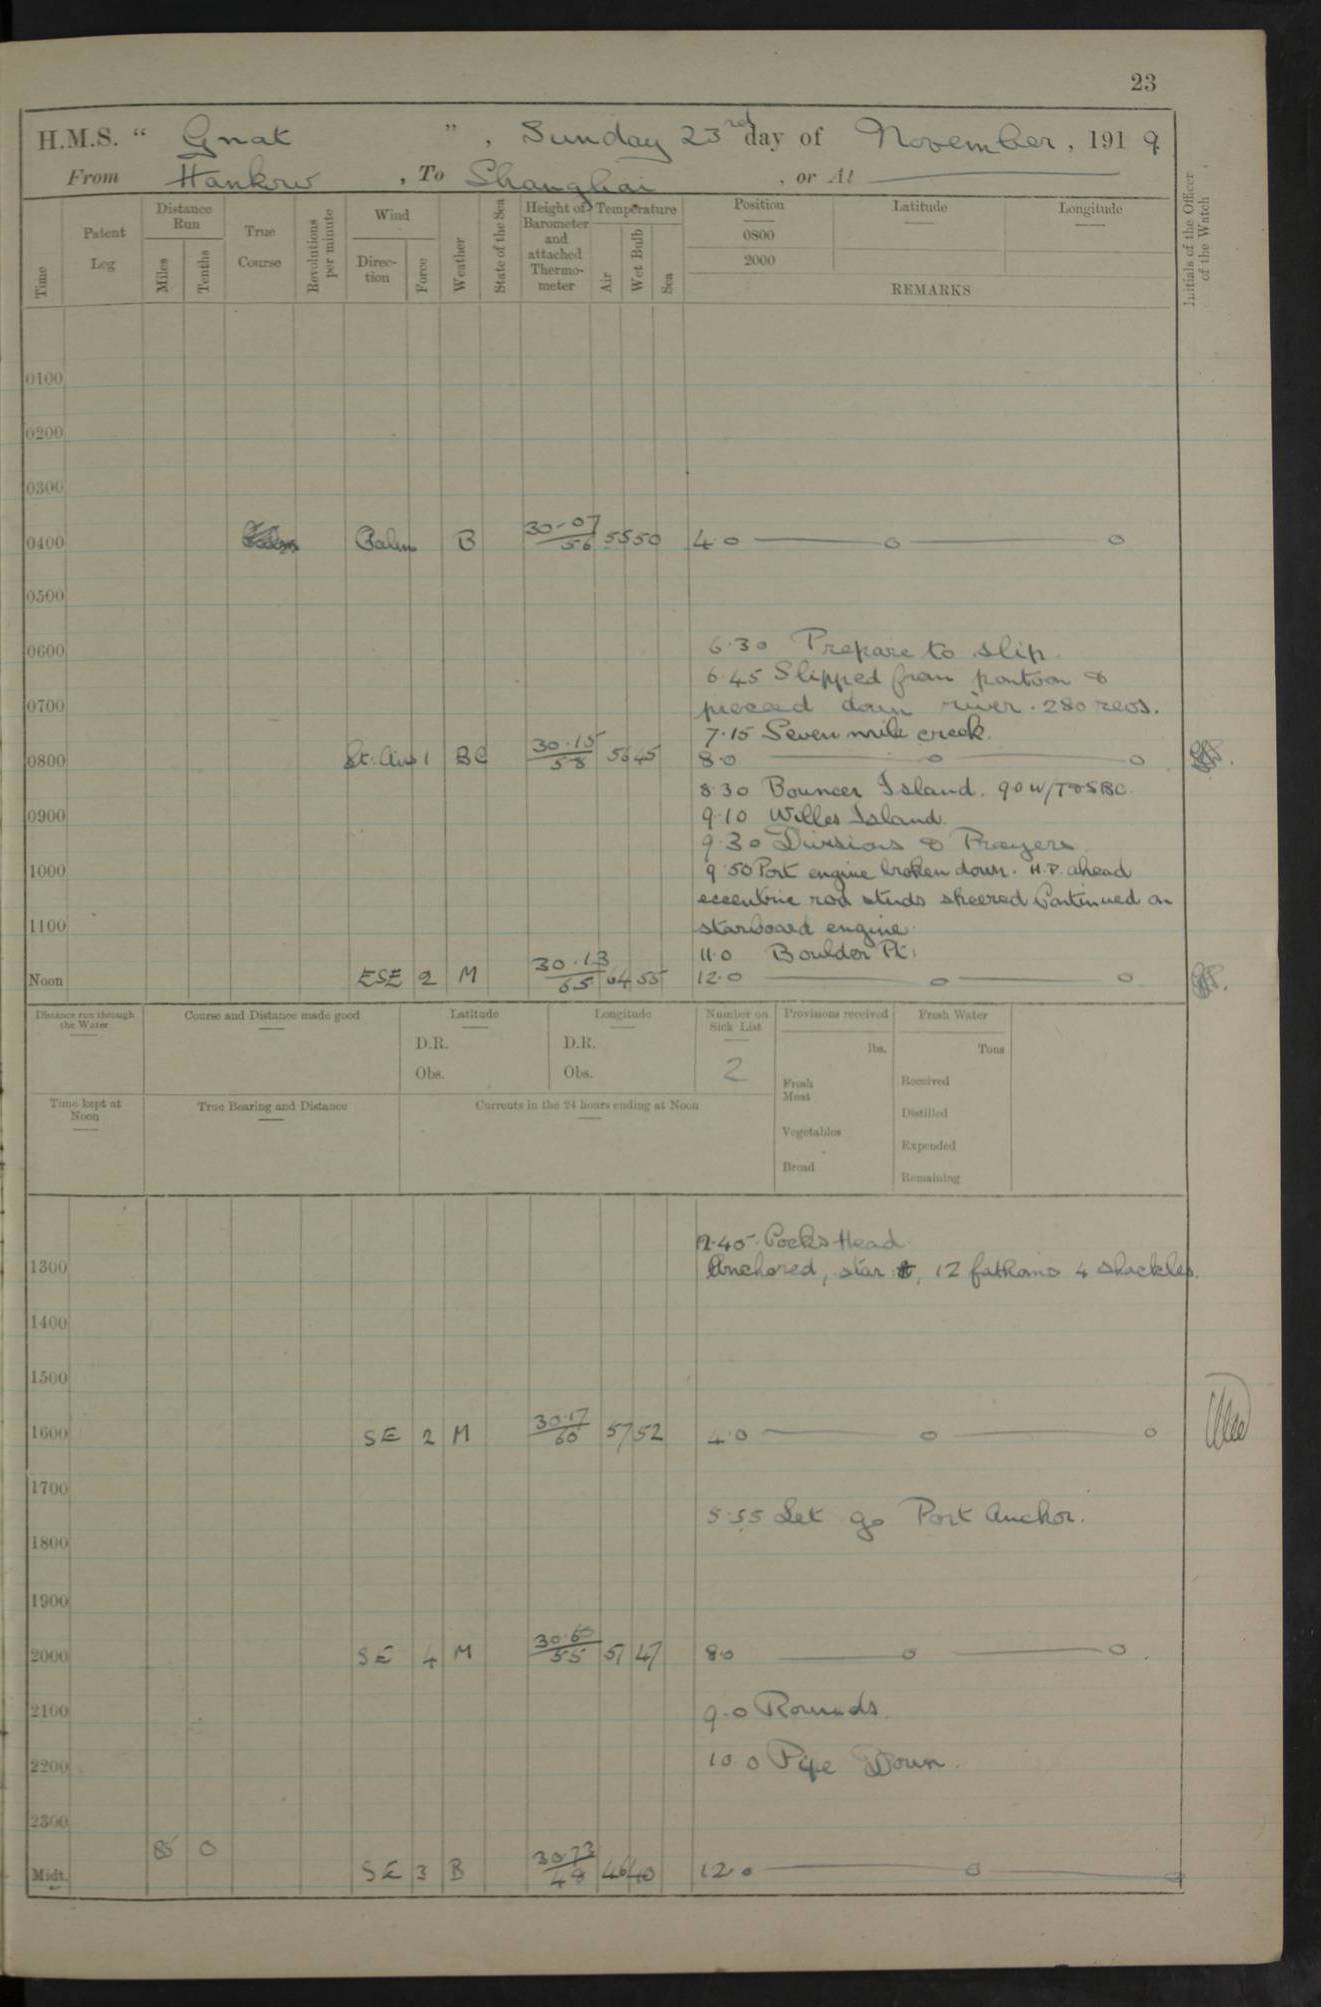 23
H.M.S. “ Gnat ” , Sunday 23rd day of November, 1919
From Hankow , To Shanghai , or At
Time
Patent Log
Distance Run
Miles
Tenths
True Course
Revolutions per minute
Wind
Direction
Force
Weather
State of the Sea
Height of Barometer and attached Thermometer
Temperature
Air
Wet Bulb
Sea
Position
0800
2000
Latitude
Longitude
REMARKS
Initials of the Officer of the Watch
0100
0200
0300
0400 Calm B 30-07/56 55 50 4.0 o o
0500
0600 6.30 Prepare to slip
6.45 Slipped from pontoon &
0700 proceed down river. 280 revs.
7.15 Seven mile creek.
0800 Lt. Airs 1 BC 30.15/58 56 45 8.0 o o
8.30 Bouncer Island. 9.0 W/T to SBC.
0900 9.10 Willes Island.
9.30 Divisions & Prayers
1000 9.50 Port engine broken down. H.P. ahead
eccentric rod studs sheered Continued on
1100 starboard engine.
11.0 Boulder Pt.
Noon ESE 2 M 30.13/65 64 55 12.0 o o
Distance run through the Water
Course and Distance made good
Latitude
D.R.
Obs.
Longitude
D.R.
Obs.
Number on Sick List
2
Provisions received
lbs.
Fresh Meat
Vegetables
Bread
Fresh Water
Tons
Received
Distilled
Expended
Remaining
Time kept at Noon
True Bearing and Distance
Currents in the 24 hours ending at Noon
12.45 Cocks Head
1300 Anchored, star, 12 fathoms 4 shackles.
1400
1500
1600 SE 2 M 30.17/60 57 52 4.0 o o
1700
5.55 Let go Port Anchor.
1800
1900
2000 SE 4 M 30.60/55 51 47 8.0 o o
2100 9.0 Rounds.
2200 10.0 Pipe Down.
2300
85 0
Midt. SE 3 B 30.73/48 46 40 12.0 o